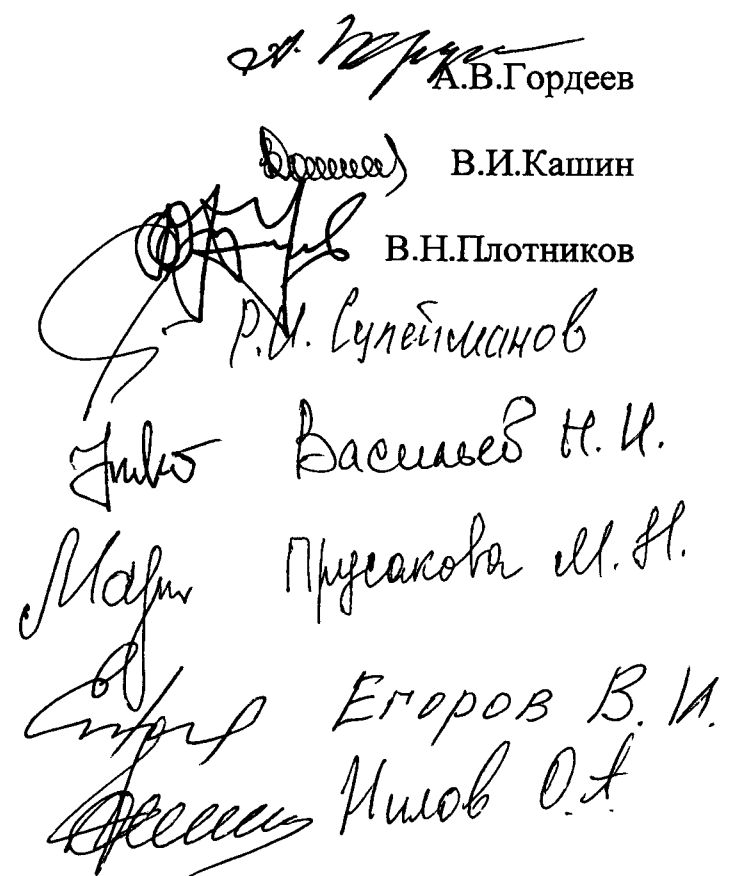 А.В.Гордеев
В.И.Кашин
В.Н.Плотников
Р.И. Сулейманов
Васильев Н. И.
Прусакова М. Н.
Егоров В. И.
Нилов О.А.